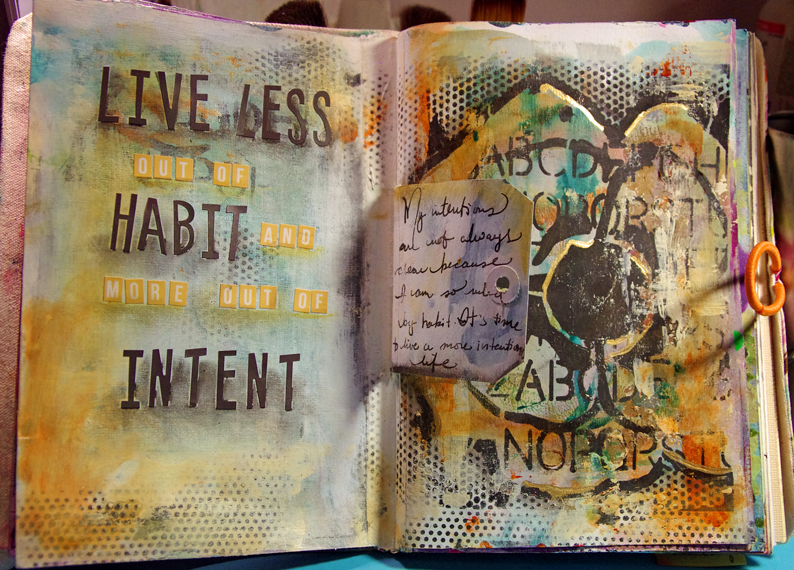 LIVE LESS
OUT OF
HABIT AND
MORE OUT OF
INTENT
My intentions
are not always
clear because
I am so ruled
by habit. It's time
to live a more intention
life
ABCDEFGH
NOPQRST
ABCDE
NOPQRST